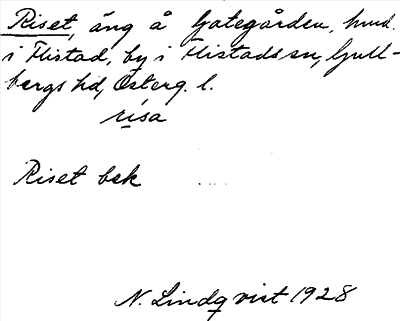 Riset, äng å Gategården, hmd.
i Flistad, by i Flistads sn, Gull-
bergs hd, Österg. l.
rísa
Riset bek
N. Lindqvist 1928